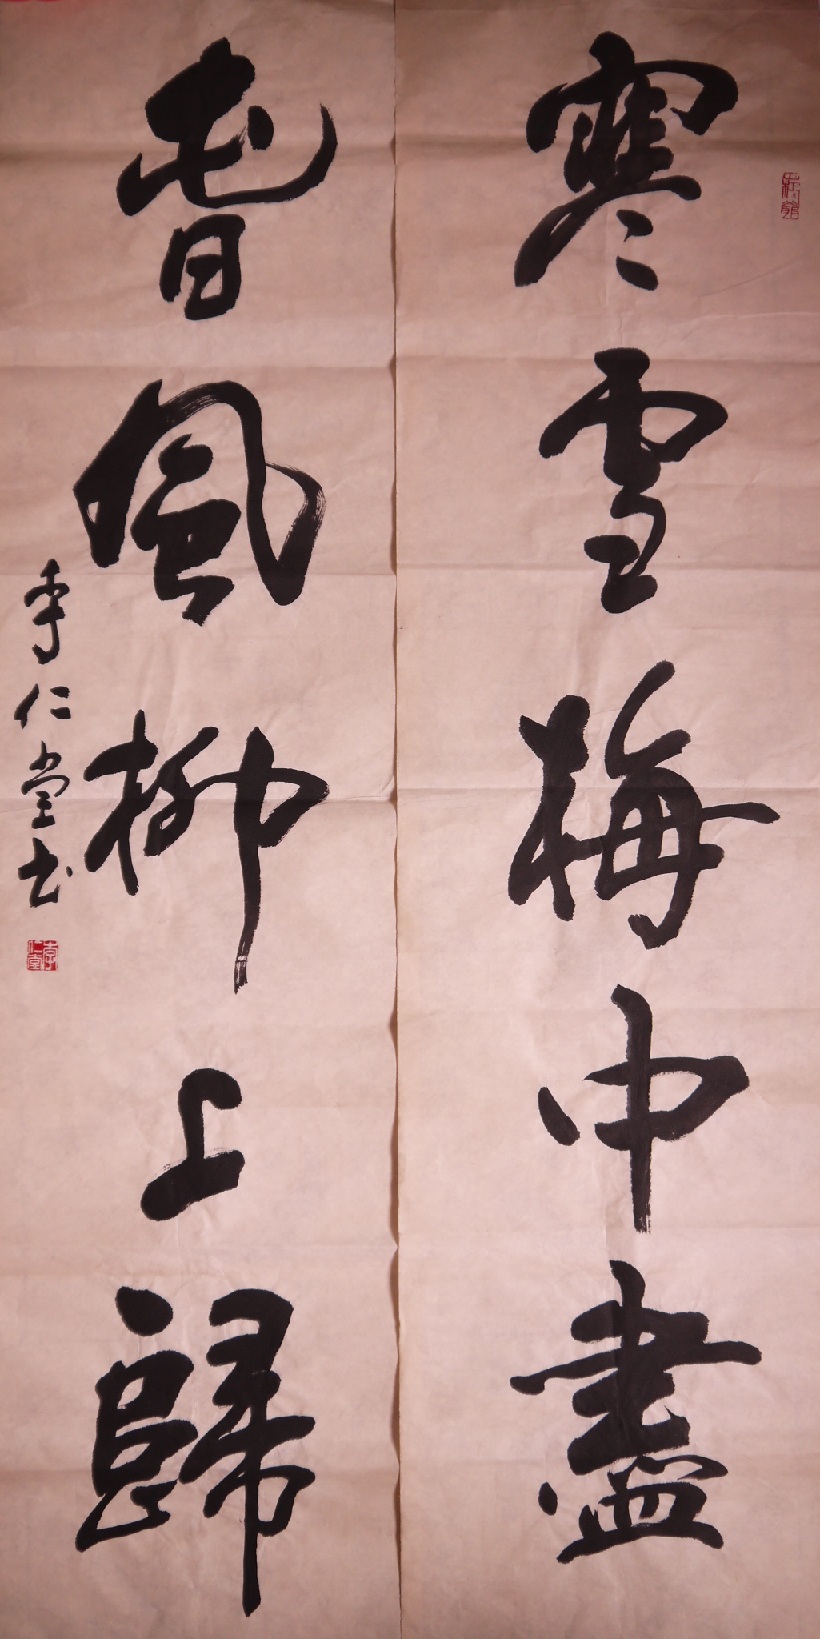 寒雪梅中盡
春風柳上歸
李仁堂书
李仁堂